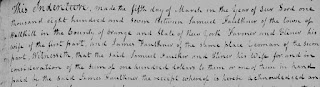 This Indenture, made the fifth day of March in the Year of Our Lord one
thousand eight hundred and seven Between Samuel Faulkner of the town of
Wallkill in the County of Orange and State of New York Farmer and Elinor his
wife of the first part, and James Faulkner of the same place Yeoman of the second
part. Witnesseth, that the said Samuel Faulkner and Elinor his Wife for and in
consideration of the sum of one hundred dollars to them or one of them in hand
paid by the said James Faulkner the receipt whereof is hereby acknowledged and